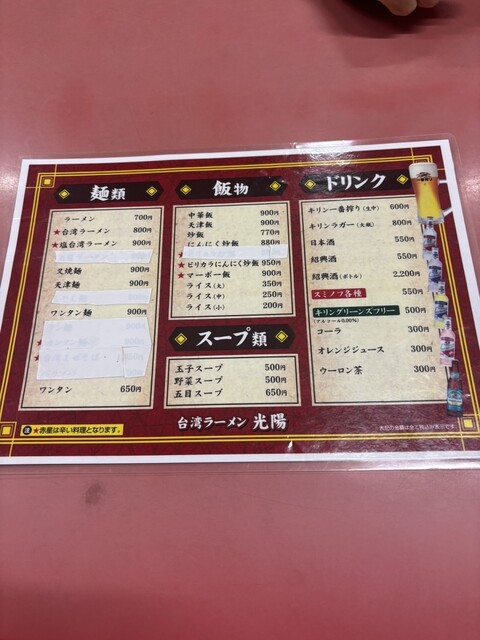 麺類
ラーメン 700円
★台湾ラーメン 800円
★塩台湾ラーメン 900円
叉焼麺 900円
天津麺 900円
ワンタン麺 900円
ワンタン 650円
注 ★赤星は辛い料理となります。
飯物
中華飯 900円
天津飯 900円
炒飯 770円
にんにく炒飯 880円
★ピリカラにんにく炒飯 950円
★マーボー飯 900円
ライス(大) 350円
ライス(中) 250円
ライス(小) 200円
スープ類
玉子スープ 500円
野菜スープ 500円
五目スープ 650円
台湾ラーメン 光陽
ドリンク
キリン一番搾り(生中) 600円
キリンラガー(大瓶) 800円
日本酒 550円
紹興酒 550円
紹興酒(ボトル) 2,200円
スミノフ各種 550円
キリングリーンズフリー 500円
(アルコール0.00%)
コーラ 300円
オレンジジュース 300円
ウーロン茶 300円
表記の金額は全て税込み表示です。